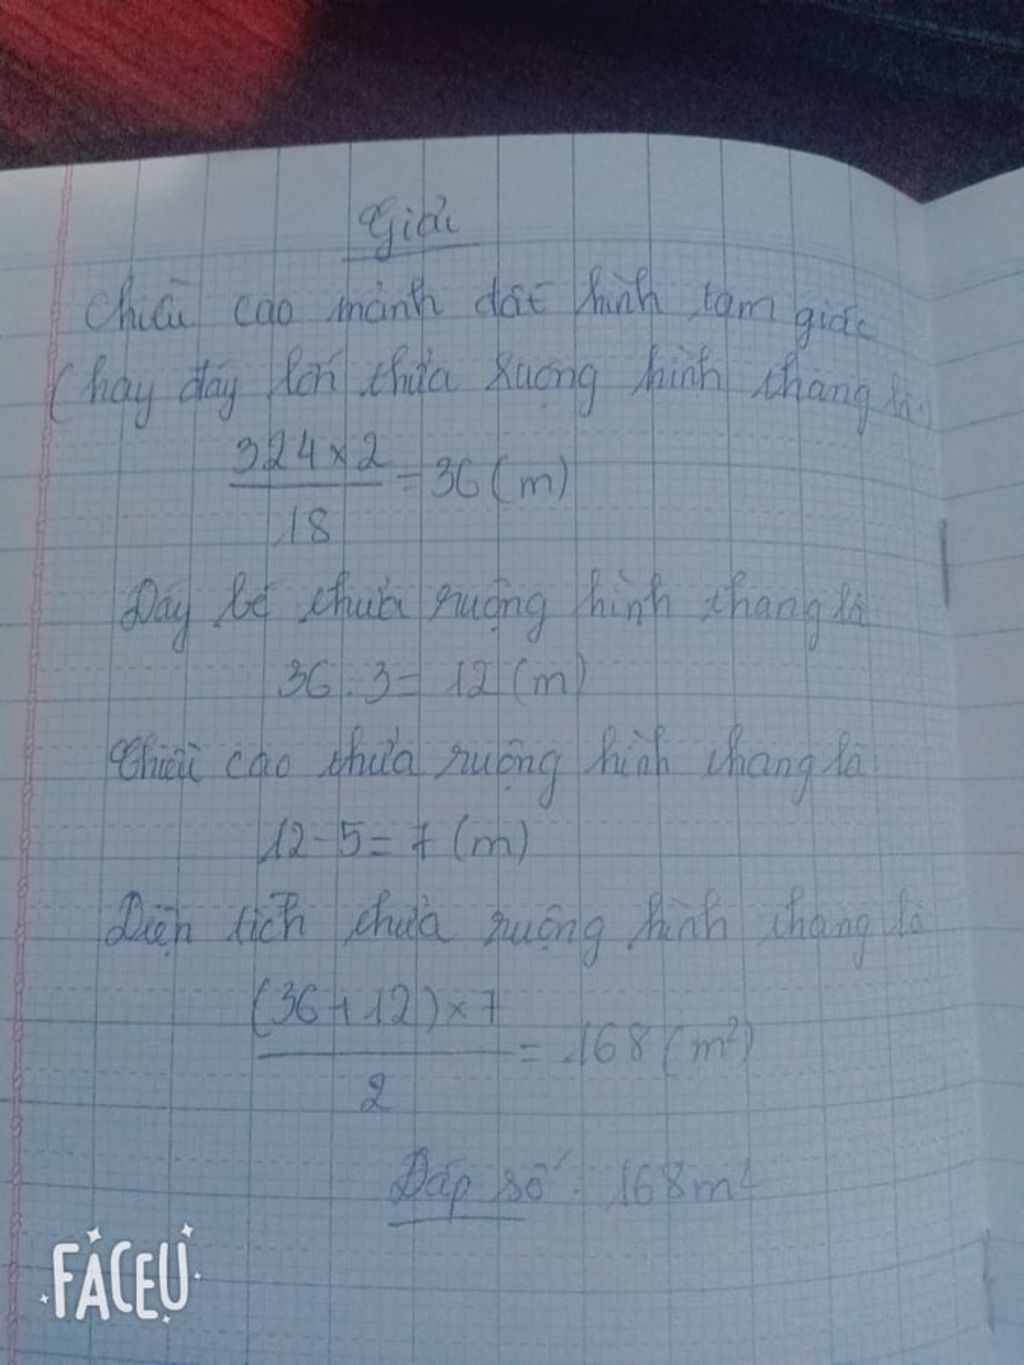 Giải
Chiều cao mảnh đất hình tam giác
(hay đáy lớn thửa ruộng hình thang là:)
324 × 2 / 18 = 36 (m)
Đáy bé thửa ruộng hình thang là
36 : 3 = 12 (m)
Chiều cao thửa ruộng hình thang là:
12 - 5 = 7 (m)
Diện tích thửa ruộng hình thang là
(36 + 12) × 7 / 2 = 168 (m²)
Đáp số : 168m²
FACEU